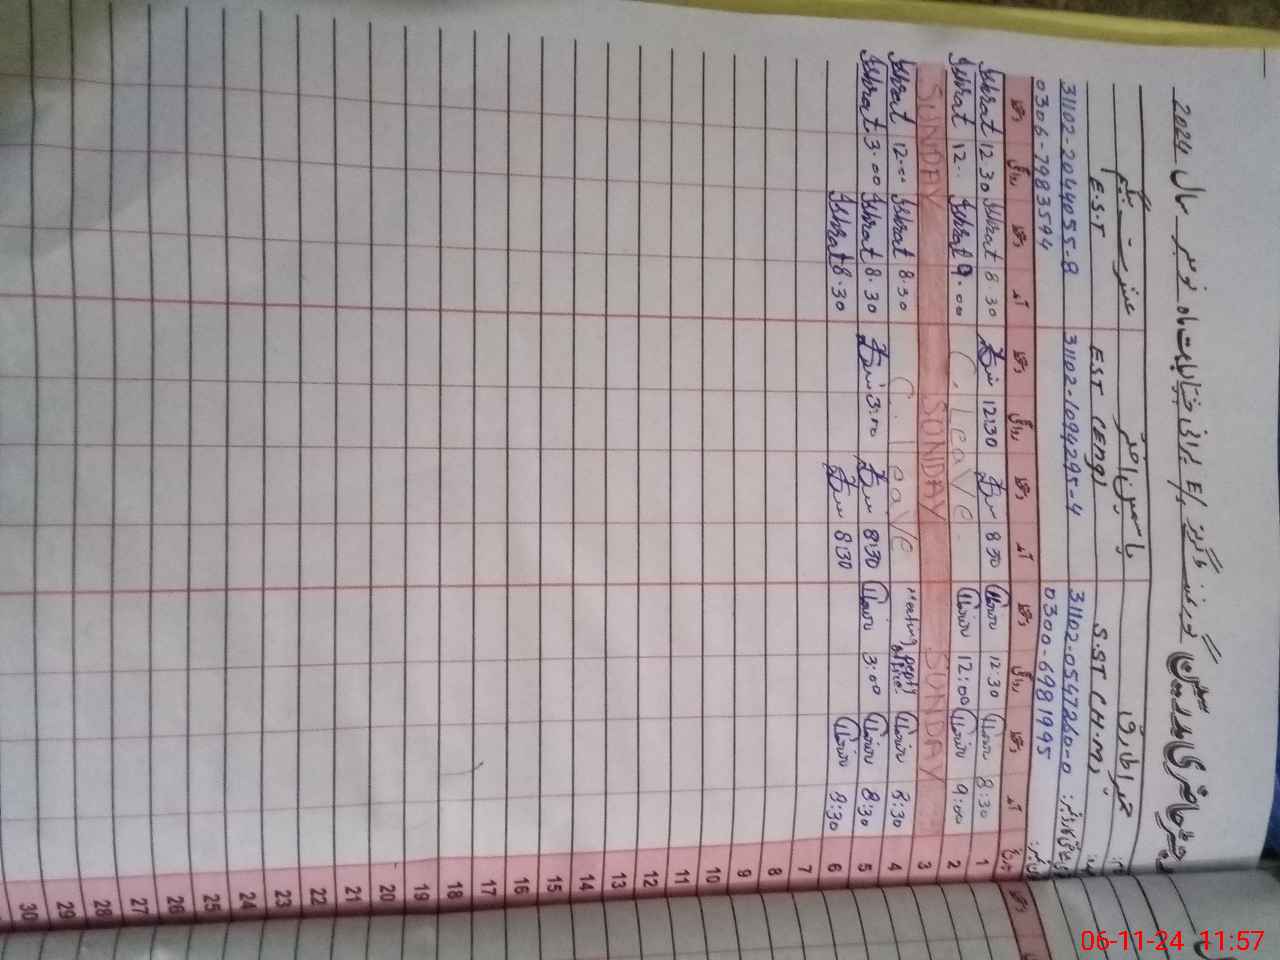 رجسٹر حاضری مدرسین گورنمنٹ گرلز E/S برائی جتیال بابت ماہ نومبر سال 2024
حمیرا طارق یاسمین اختر عشرت بیگم
S.ST (H.M) EST (Eng) E.S.T
31102-0547260-0 31102-1094295-4 31102-2044055-8
0300-6981995 0306-7983594
تاریخ آمد دستخط روانگی دستخط آمد دستخط روانگی دستخط آمد دستخط روانگی دستخط
1 8:30 12:30 8:30 12:30 8.30 Ishrat 12.30 Ishrat
2 9:00 12:00 C.Leave 9.00 Ishrat 12.. Ishrat
3 SUNDAY SUNDAY SUNDAY
4 8:30 Meeting depty office. C.Leave 8.30 Ishrat 12.00 Ishrat
5 8:30 3:00 8:30 3:00 8.30 Ishrat 3.00 Ishrat
6 8:30 8:30 8.30 Ishrat
7
8
9
10
11
12
13
14
15
16
17
18
19
20
21
22
23
24
25
26
27
28
29
30
06-11-24 11:57